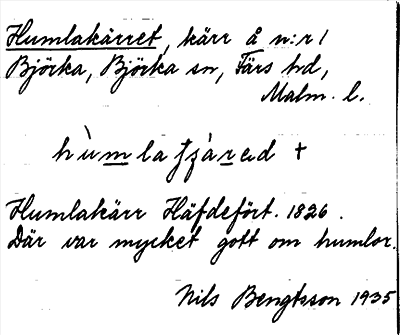 Humlakärret, kärr å n:r 1
Björka, Björka sn, Färs hd,
Malm. l.
hùmlatjàrəd +
Humlakärr Häfdefört. 1826.
Där var mycket gott om humlor.
Nils Bengtsson 1935